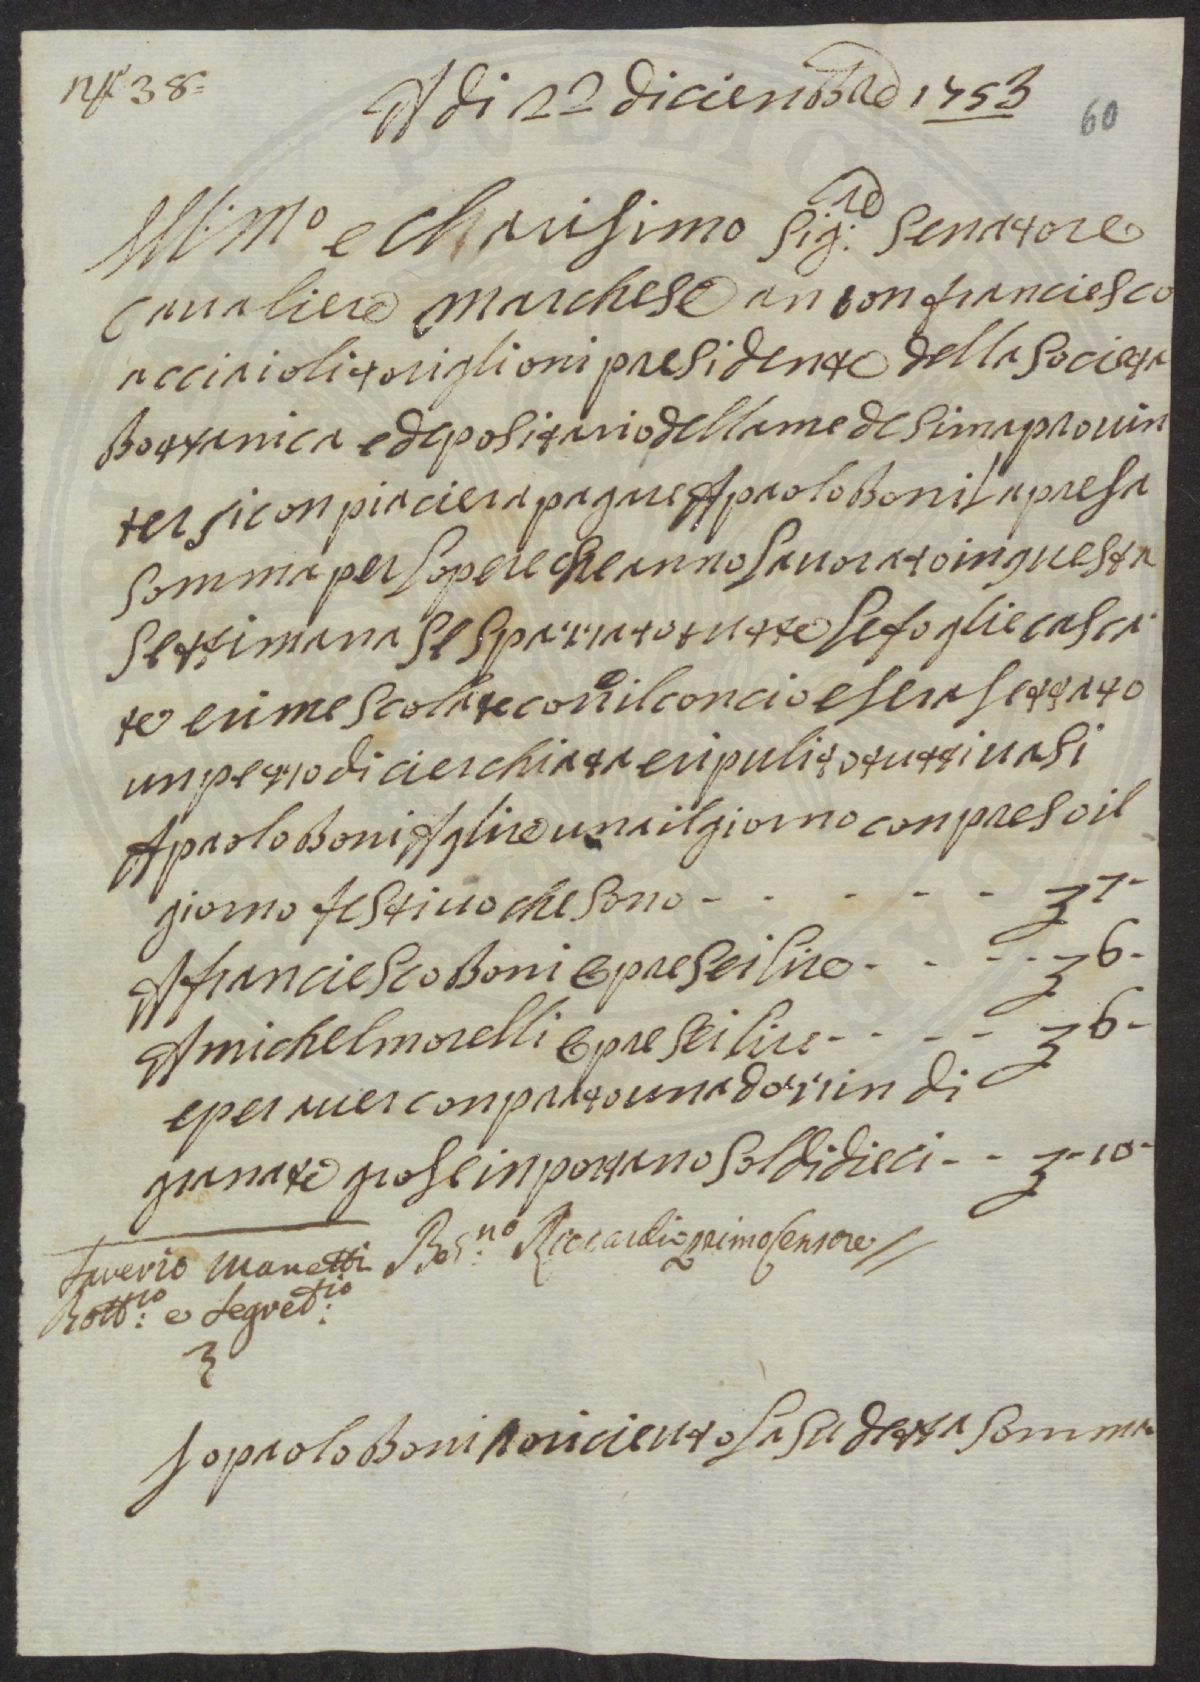 N.º 38
A di 22 dicienbre 1753
60
Ill:mo e Charisimo Sig:re Senatore
Cavaliere Marchese Anton franciesco
acciaioli toriglioni presidente della Societa
Bottanica e depositario della medesima provin
ter si conpiaciera pagare A paolo Boni la presa
somma per l opere che anno lavorato in questa
settimana se sparato tutte le foglie casca
te e rimescolate con il concio e sera setgato
un petto di cierchiata e ripulito tutti i vasi
A paolo Boni A lire una il giorno conpreso il
giorno festivo che sono - - - - - - £ 7-
A franciesco Boni e pre sei lire - - - - £ 6-
A michel morelli e pre sei lire - - - - £ 6-
e per aver conprato una dozzin di
granate grose inportano soldi dieci - - £ - 10 -
Saverio Manetti
Bott:co e Segret:rio
Ber:no Riccardi primo Censore
Io paolo Boni o ricieuto la su detta somma